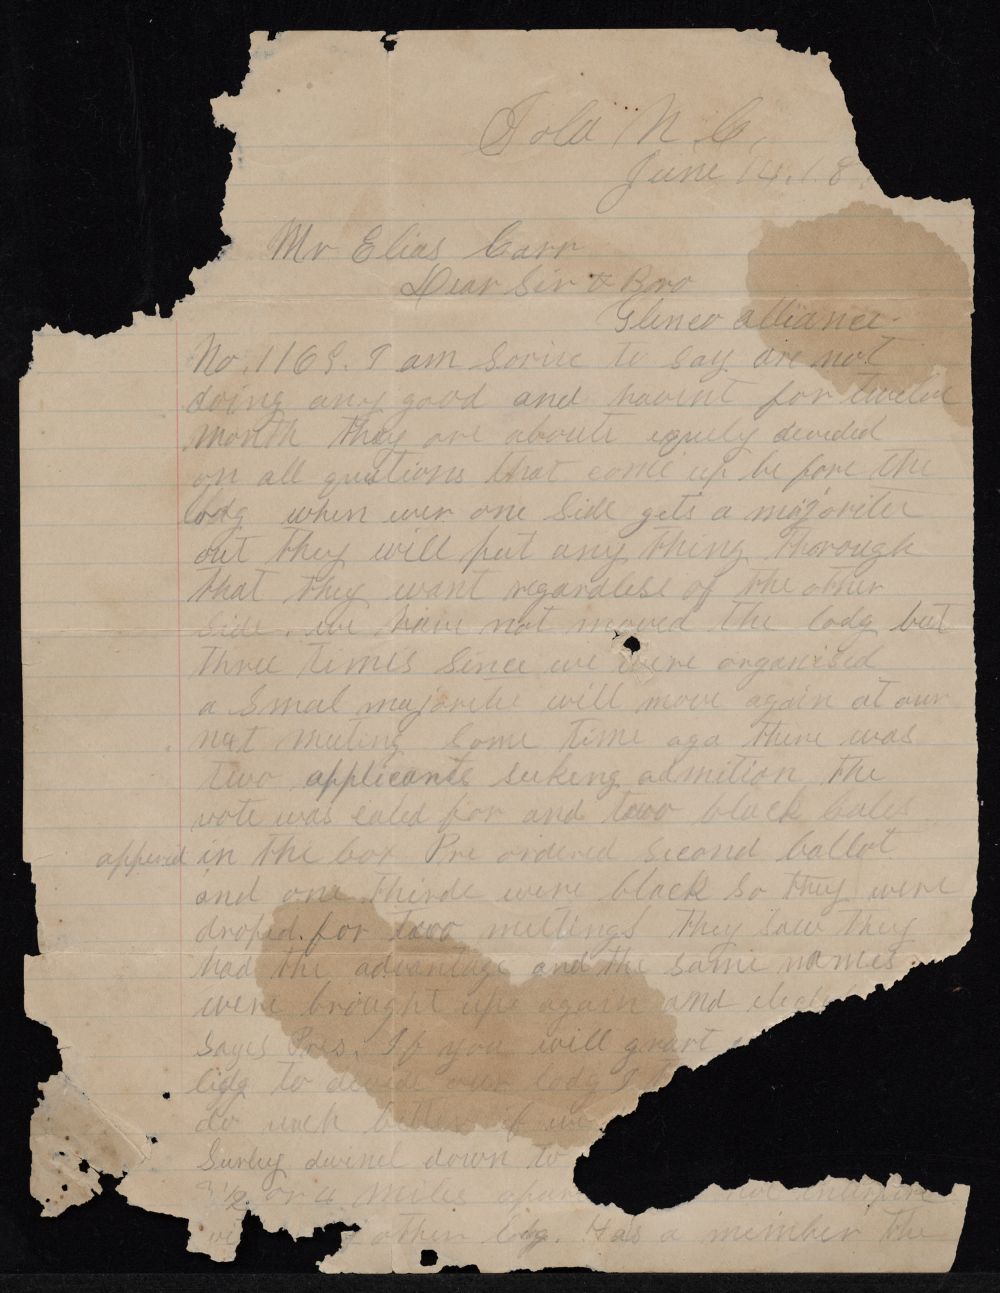 Iola N. C,
June 14. 18
Mr Elias Carr
Dear Sir & Bro
Glenco alliance
No. 1169. I am sorrie to say are not
doing any good and havent for twelve
month they are aboute equely devided
on all questions that come up before the
lodg when ever one side gets a majoritee
out they will put any thing thorough
that they want regardlese of the other
side. we have not moved the lodg but
three times since we were organised
a smal majorite will move again at our
next meeting some time aga there was
two applicants seeking admition the
vote was caled for and two black bales
appered in the box Pre ordered second ballot
and one thirde were black so they were
droped for two meetings they saw they
had the advantage and the same names
were brought up again and elect
says Pres. If you will grant
to our lodg
do better if we
down to
3 1/2 or 4 miles apar not interfere
other lodg. Has a member the